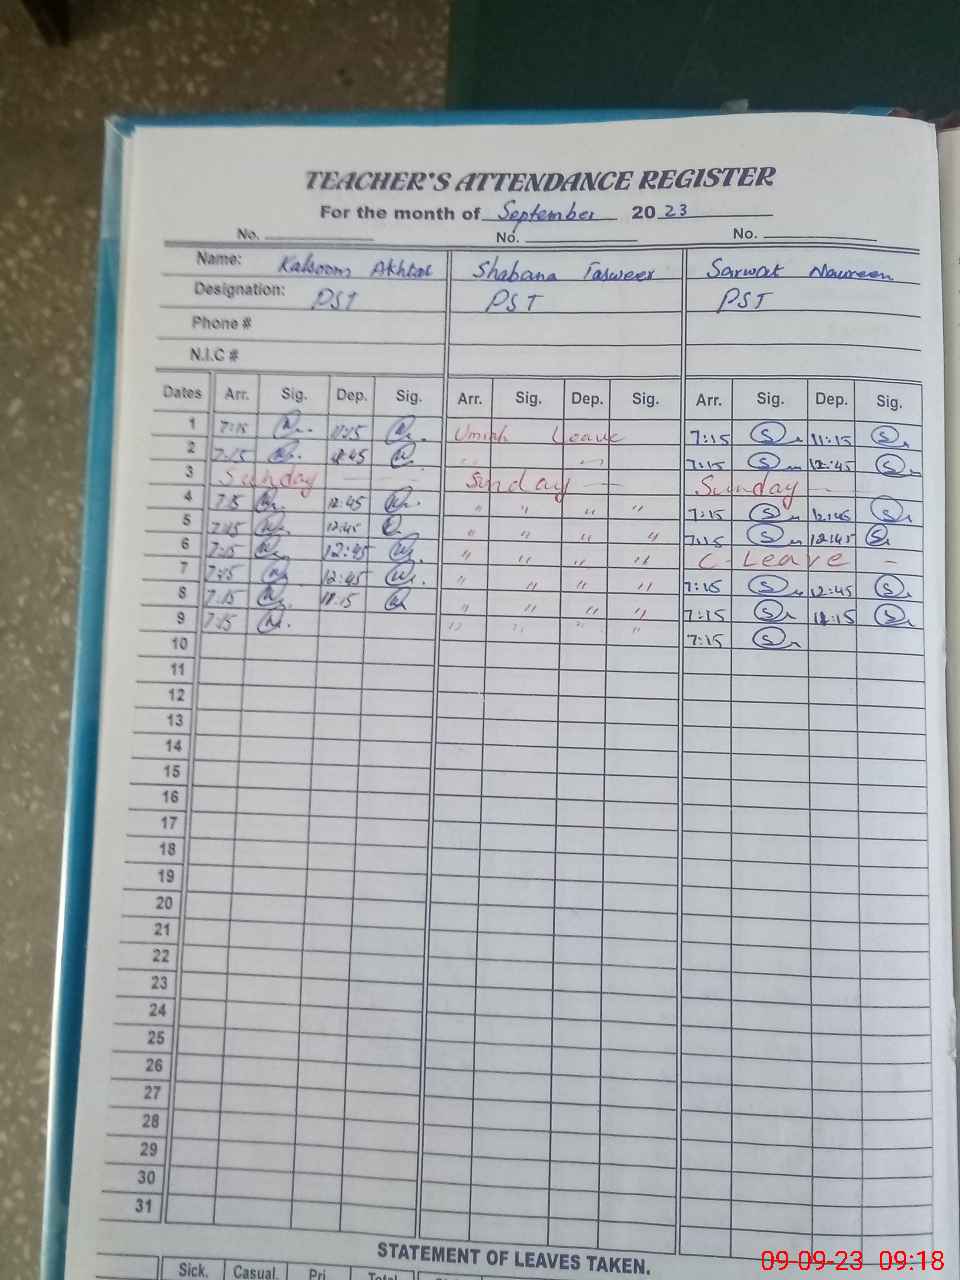 TEACHER'S ATTENDANCE REGISTER
For the month of September 2023
No. No. No.
Name: Kalsoom Akhtar Shabana Tasweer Sarwat Naureen
Designation: PST PST PST
Phone #
N.I.C #
Dates Arr. Sig. Dep. Sig. Arr. Sig. Dep. Sig. Arr. Sig. Dep. Sig.
1 7:15 11:15 Leave 7:15 11:15
2 7:15 12:45 " " 7:15 12:45
3 Sunday Sunday — Sunday —
4 7:15 12:45 " " " " 7:15 12:45
5 7:15 12:45 " " " " 7:15 12:45
6 7:15 12:45 " " " " C-Leave —
7 7:15 12:45 " " " " 7:15 12:45
8 7:15 11:15 " " " " 7:15 11:15
9 7:15 " " " " 7:15
10
11
12
13
14
15
16
17
18
19
20
21
22
23
24
25
26
27
28
29
30
31
STATEMENT OF LEAVES TAKEN.
Sick. Casual. Pri Total
09-09-23 09:18